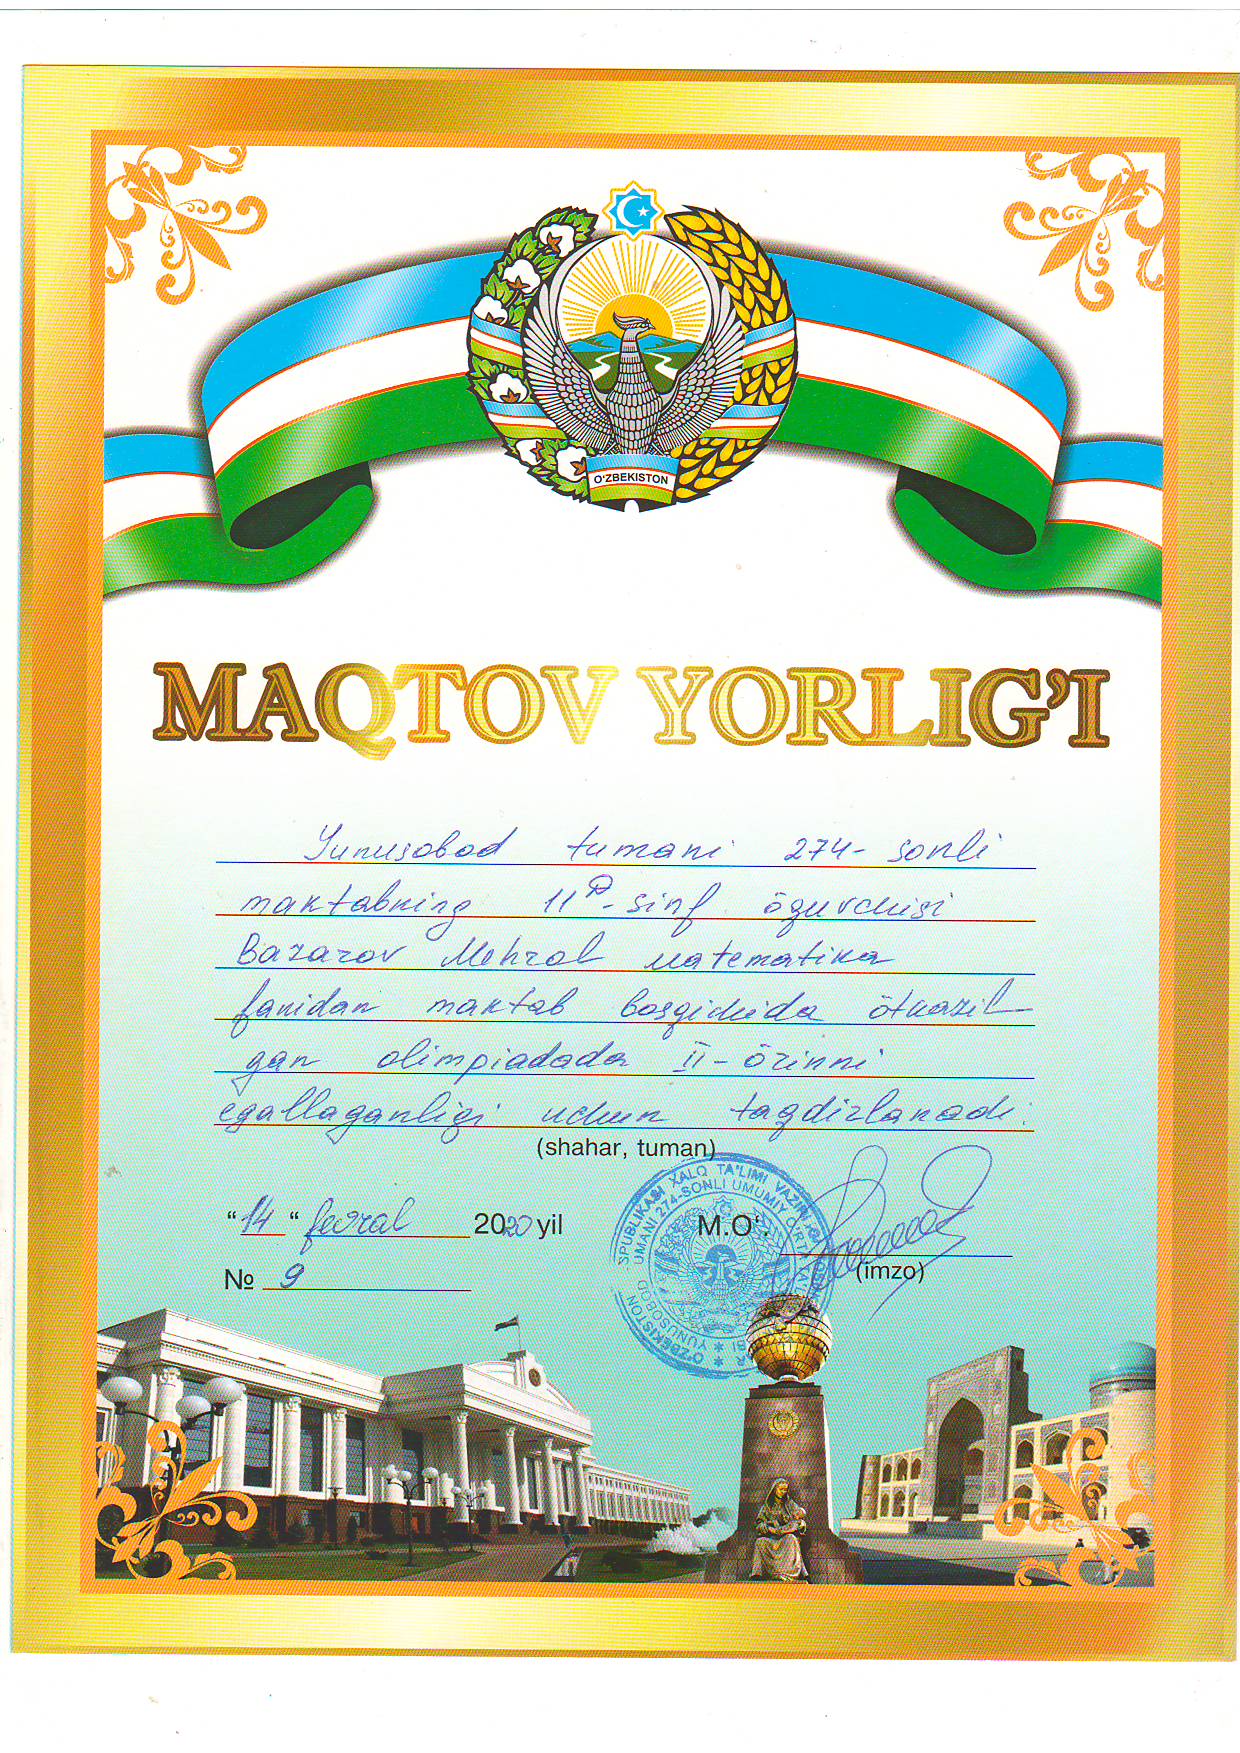 O'ZBEKISTON
MAQTOV YORLIG'I
Yunusobod tumani 274-sonli
maktabning 11D-sinf õquvchisi
Bazarov Mehrob matematika
fanidan maktab bosqichida õtkazil
gan olimpiadada II-õrinni
egallaganligi uchun taqdirlanadi.
(shahar, tuman)
"14" fevral 2020 yil M.O'.
(imzo)
№ 9
O'ZBEKISTON SPUBLIKASI XALQ TA'LIMI VAZIRL
YUNUSOBOD UMANI 274-SONLI UMUMIY O'RTA TA'L